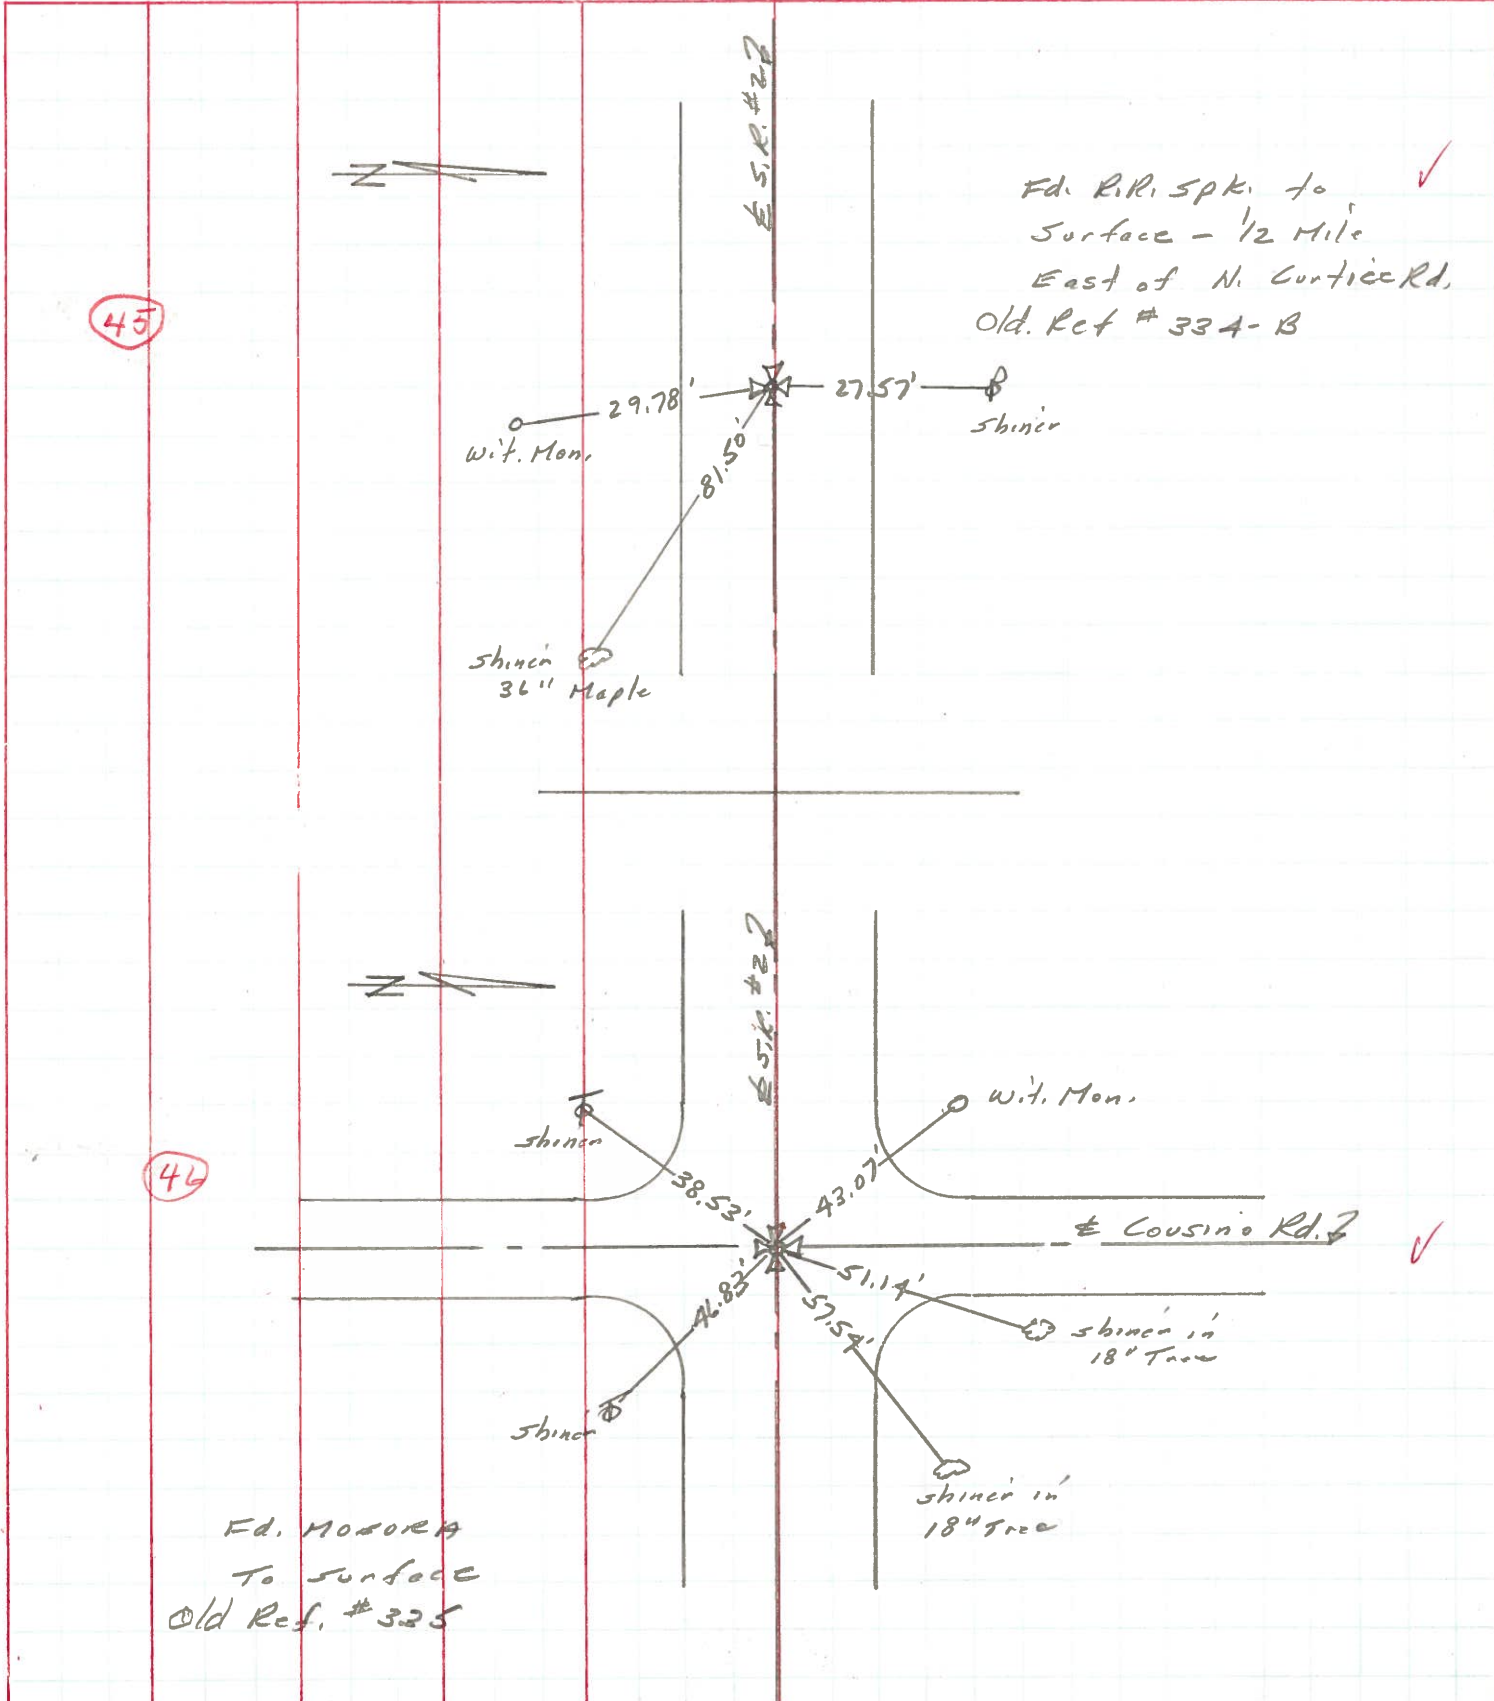 ℄ S.R. #2
N
Fd. R.R. Spk. to
Surface - 1/2 Mile
East of N. Curtice Rd.
Old. Ref # 334-B
✓
45
29.78'
27.57'
Wit. Mon.
Shiner
81.50'
Shiner
36" Maple
℄ S.R. #2
N
Wit. Mon.
Shiner
46
38.53'
43.07'
℄ Cousino Rd.
✓
46.83'
51.14'
57.54'
Shiner in
18" Tree
Shiner
Shiner in
18" Tree
Fd.
To Surface
Old Ref. # 335